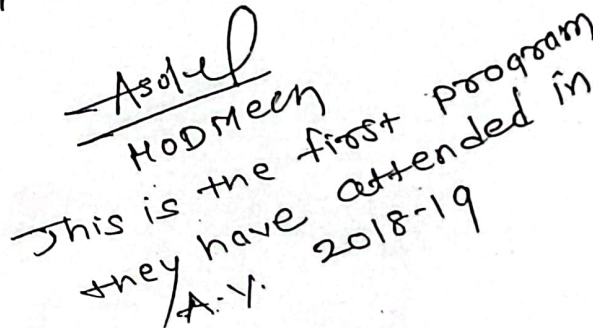 HOD Mech
This is the first program
they have attended in
A.Y. 2018-19